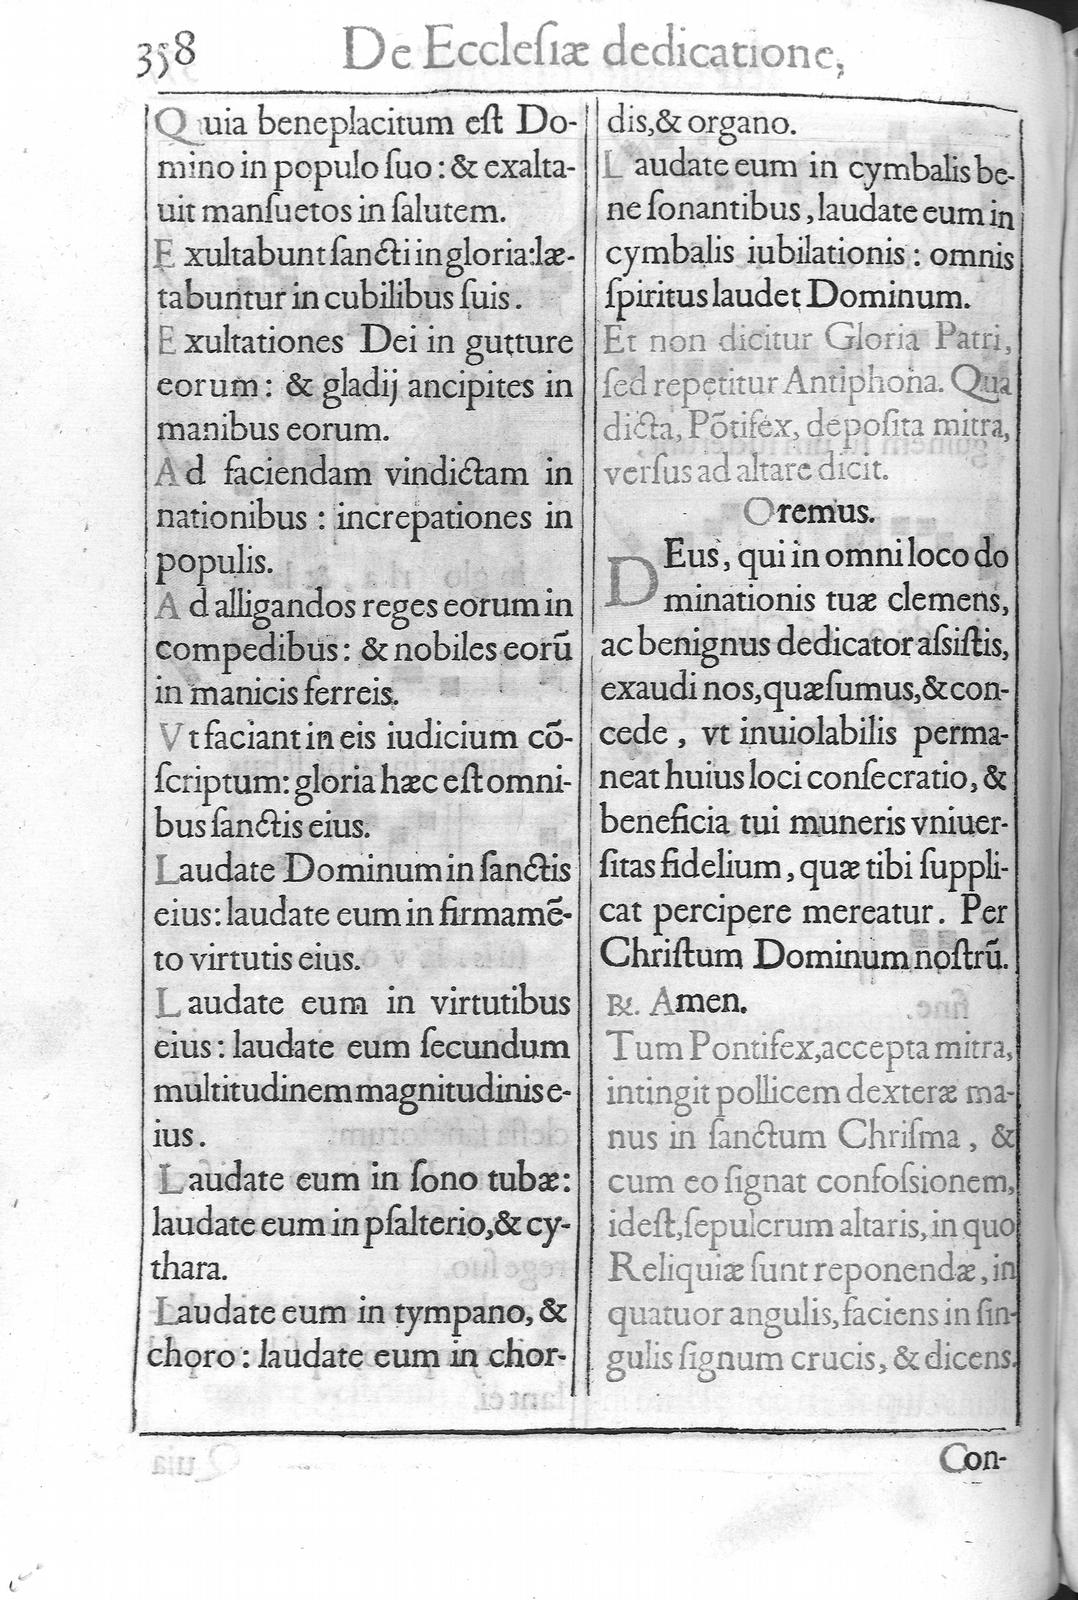 358
De Eccleſiæ dedicatione,
Quia beneplacitum eſt Do-
mino in populo ſuo: & exalta-
uit manſuetos in ſalutem.
Exultabunt ſancti in gloria: læ-
tabuntur in cubilibus ſuis.
Exultationes Dei in gutture
eorum: & gladij ancipites in
manibus eorum.
Ad faciendam vindictam in
nationibus: increpationes in
populis.
Ad alligandos reges eorum in
compedibus: & nobiles eorū
in manicis ferreis.
Vt faciant in eis iudicium cō-
ſcriptum: gloria hæc eſt omni-
bus ſanctis eius.
Laudate Dominum in ſanctis
eius: laudate eum in firmamē-
to virtutis eius.
Laudate eum in virtutibus
eius: laudate eum ſecundum
multitudinem magnitudinis e-
ius.
Laudate eum in ſono tubæ:
laudate eum in pſalterio, & cy-
thara.
Laudate eum in tympano, &
choro: laudate eum in chor-
dis, & organo.
Laudate eum in cymbalis be-
ne ſonantibus, laudate eum in
cymbalis iubilationis: omnis
ſpiritus laudet Dominum.
Et non dicitur Gloria Patri,
ſed repetitur Antiphona. Qua
dicta, Pōtifex, depoſita mitra,
verſus ad altare dicit.
Oremus.
DEus, qui in omni loco do
minationis tuæ clemens,
ac benignus dedicator aſsiſtis,
exaudi nos, quæſumus, & con-
cede, vt inuiolabilis perma-
neat huius loci conſecratio, &
beneficia tui muneris vniuer-
ſitas fidelium, quæ tibi ſuppli-
cat percipere mereatur. Per
Chriſtum Dominum noſtrū.
℟. Amen.
Tum Pontifex, accepta mitra,
intingit pollicem dexteræ ma-
nus in ſanctum Chriſma, &
cum eo ſignat confoſsionem,
ideſt, ſepulcrum altaris, in quo
Reliquiæ ſunt reponendæ, in
quatuor angulis, faciens in ſin-
gulis ſignum crucis, & dicens.
Con-